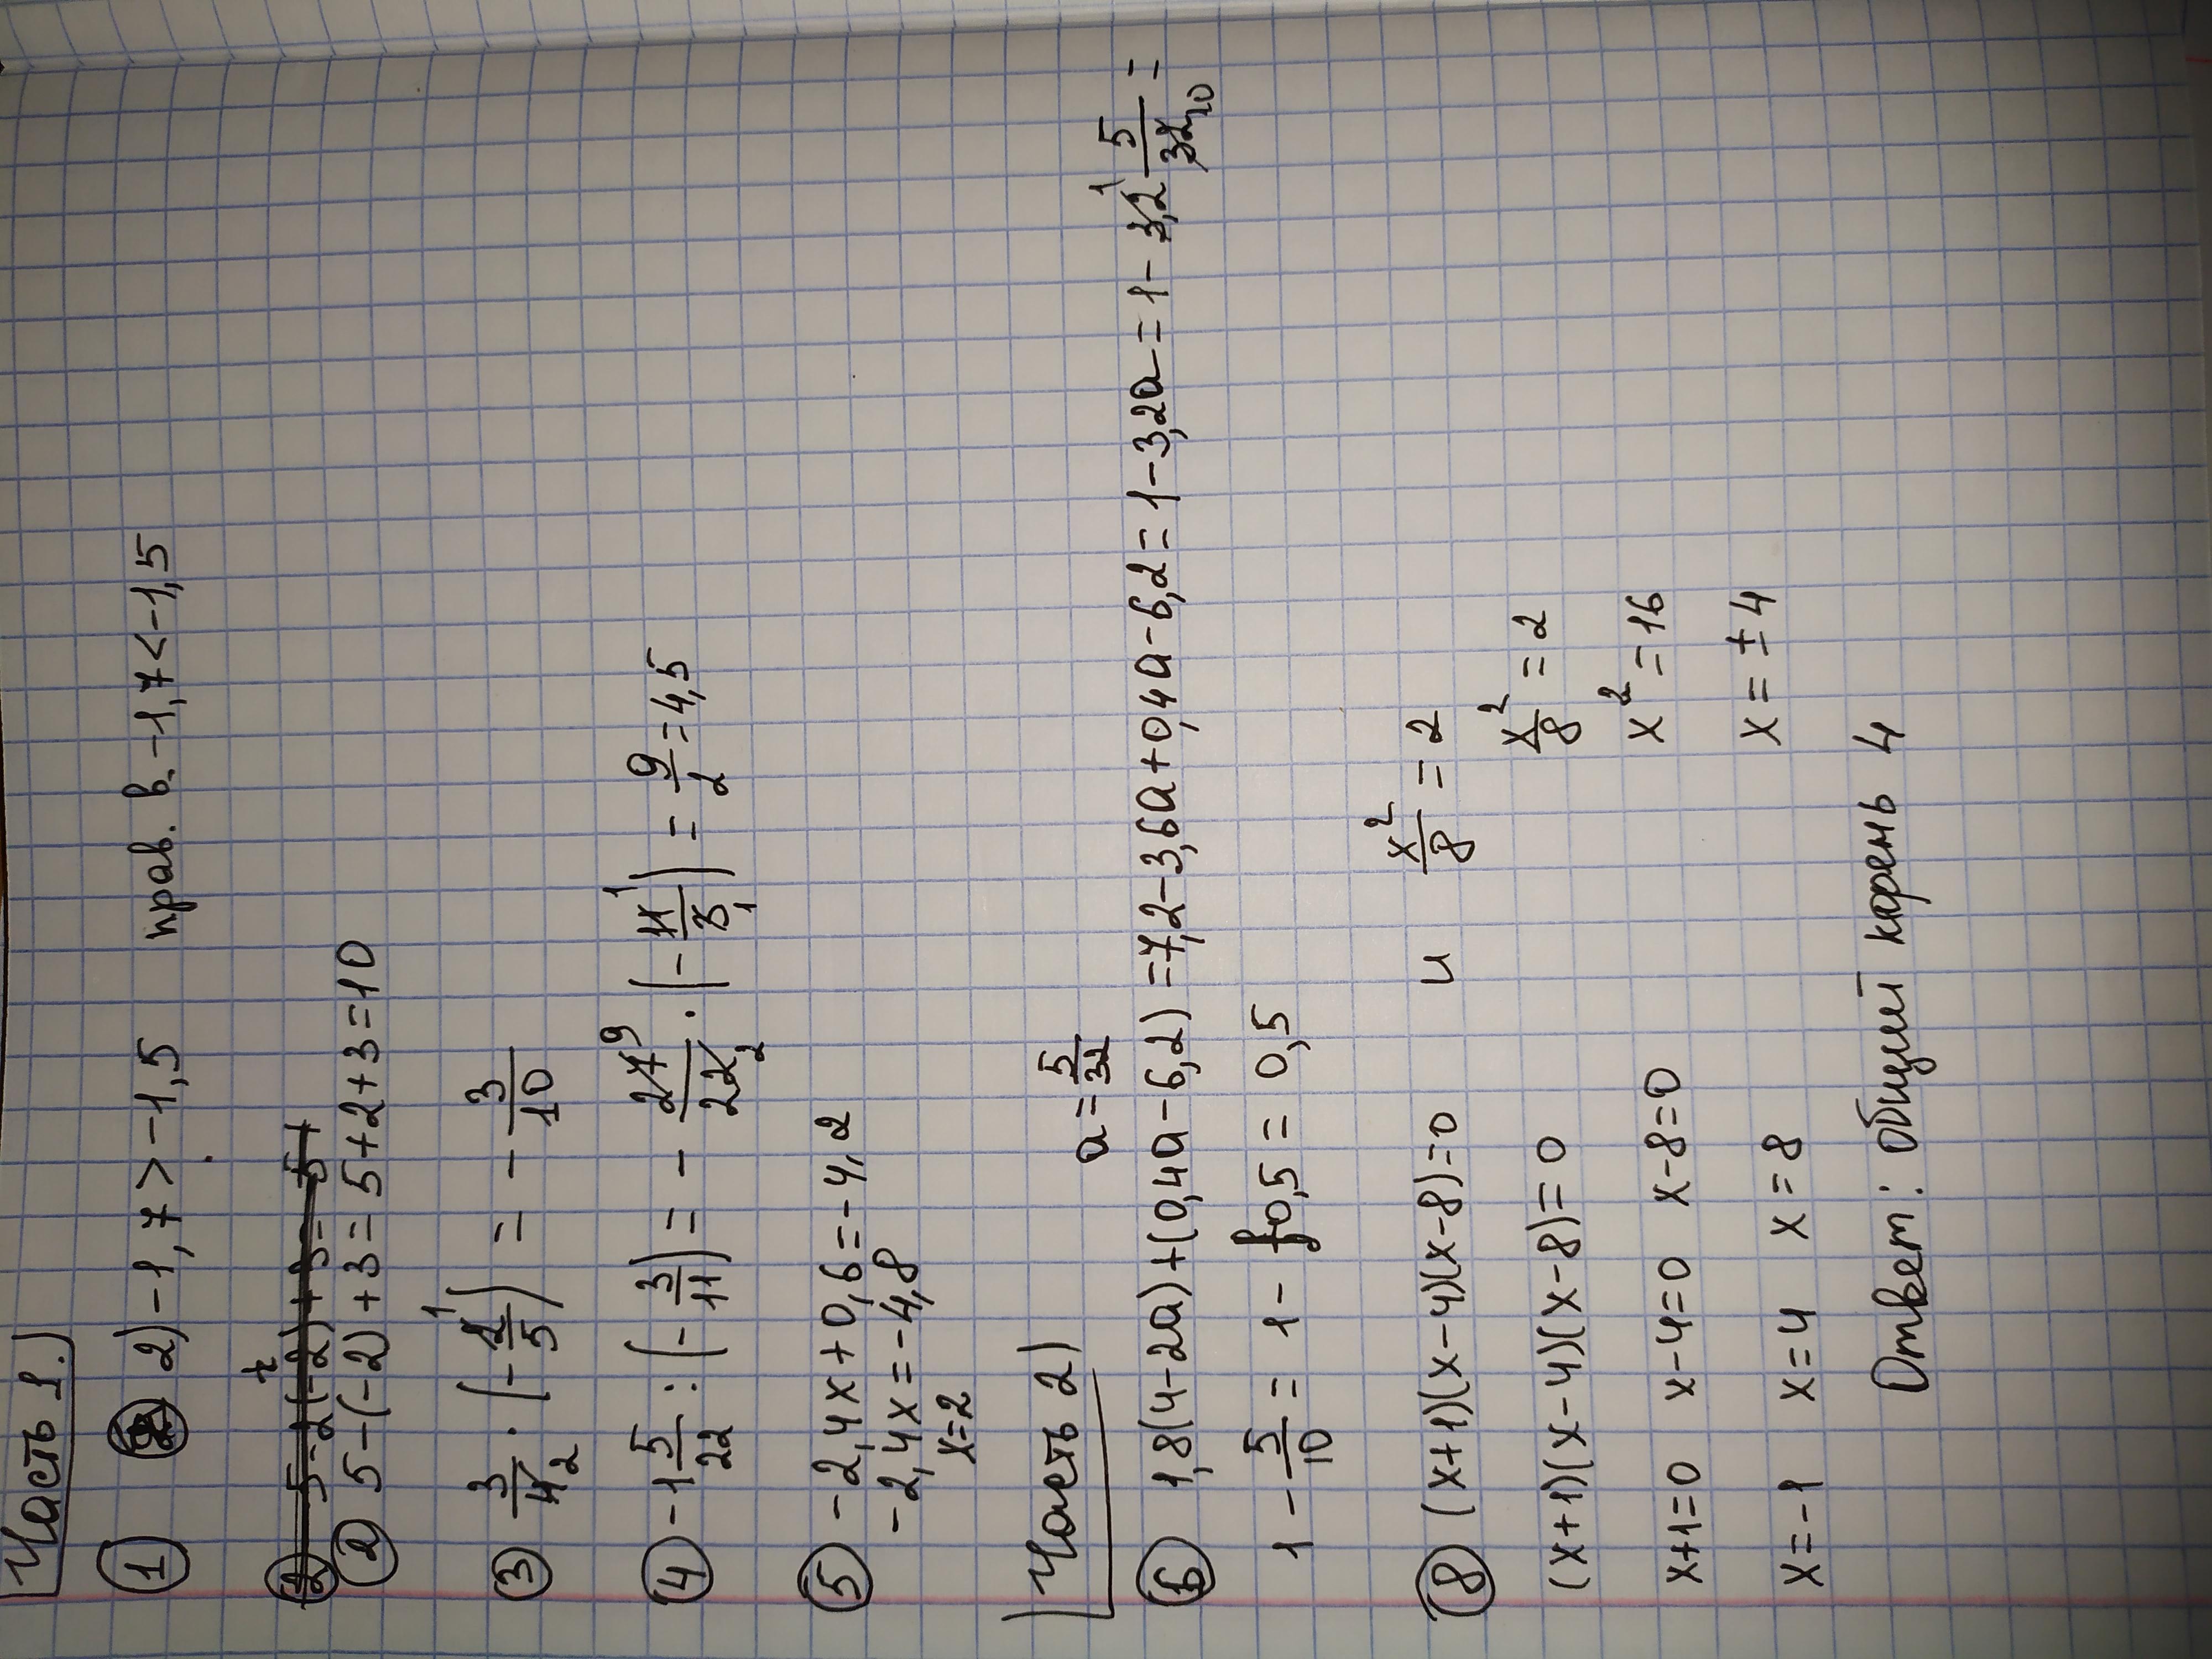 Часть 1.
① 2) -1,7 > -1,5 прав. в. -1,7 < -1,5
② 5-(-2)+3=5+2+3=10
③ 3/4 · (-2/5) = -3/10
④ -1 5/22 : (-3/11) = -27/22 · (-11/3) = 9/2 = 4,5
⑤ -2,4x+0,6=-4,2
-2,4x=-4,8
x=2
Часть 2)
a=5/32
⑥ 1,8(4-2a)+(0,4a-6,2)=7,2-3,6a+0,4a-6,2=1-3,2a=1-3,2 5/32=
1-5/10=1-0,5=0,5
⑧ (x+1)(x-4)(x-8)=0 и x²/8=2
(x+1)(x-4)(x-8)=0 x²/8=2
x+1=0 x-4=0 x-8=0 x²=16
x=-1 x=4 x=8 x=±4
Ответ: общий корень 4